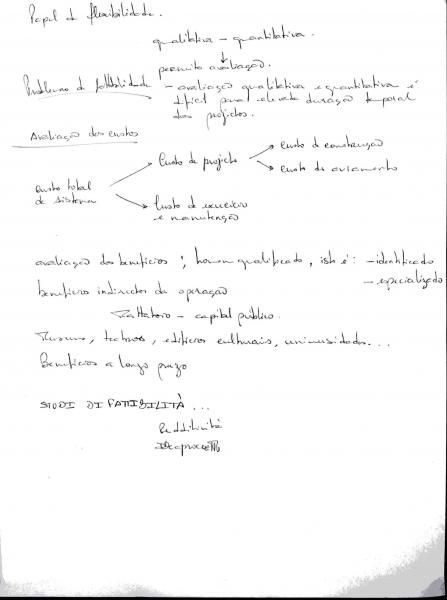 Papel de flexibilidade.
qualitativa - quantitativa.
permite avaliação.
Problemas de fattibilidade - avaliação qualitativa e quantitativa é
difícil para elevada duração temporal
dos projetos.
Avaliação dos custos
Custo total
de sistema
Custo de projeto
Custo de construção
Custo de
Custo de exercício
e manutenção
avaliação dos benefícios; homem qualificado, isto é: - identificado
- especializado
benefícios indirectos da operação
- capital público.
Museus, teatros, edifícios culturais, universidades...
Benefícios a longo prazo
STUDI DI FATTIBILITÀ ...
Redditività